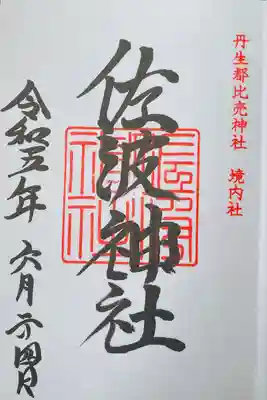 丹生都比売神社　境内社
佐波神社
令和五年 六月二十四日